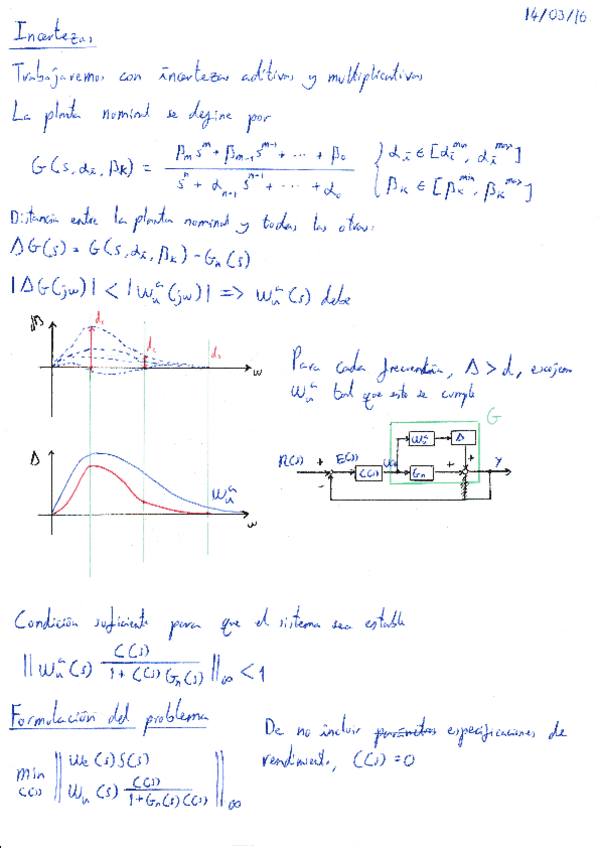 14/03/16
Incertezas
Trabajaremos con incertezas aditivas y multiplicativas
La planta nominal se define por
G(s, αᵢ, βₖ) = (βₘsᵐ + βₘ₋₁sᵐ⁻¹ + ... + β₀) / (sⁿ + αₙ₊₁sⁿ⁻¹ + ... + α₀) { αᵢ ∈ [αᵢᵐⁱⁿ, αᵢᵐᵃˣ]
{ βₖ ∈ [βₖᵐⁱⁿ, βₖᵐᵃˣ]
Distancia entre la planta nominal y todas las otras:
ΔG(s) = G(s, αᵢ, βₖ) - Gₙ(s)
|ΔG(jω)| < |Wᵤᵃ(jω)| => Wᵤᵃ(s) debe
dB d₁ d₂ d₃ ω
Para cada frecuencia, Δ > d, escojem
Wᵤᵃ tal que este se cumple
G
Wᵤᵃ Δ
R(s) + E(s) C(s) Gₙ + + Y
-
Δ Wᵤᵃ ω
Condición suficiente para que el sistema sea estable
||Wᵤᵃ(s) C(s) / (1 + C(s)Gₙ(s))||∞ < 1
Formulación del problema
min C(s) || Wₑ(s)S(s)
Wᵤ(s) C(s) / (1+Gₙ(s)C(s)) ||∞
De no incluir parámetros especificaciones de
rendimiento, C(s) = 0